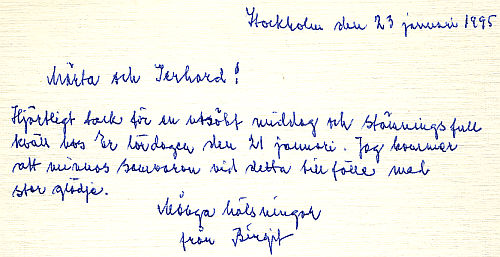 Stockholm den 23 januari 1995
Märta och Gerhard!
Hjärtligt tack för en utsökt middag och stämningsfull
kväll hos Er lördagen den 21 januari. Jag kommer
att minnas samvaron vid detta tillfälle med
stor glädje.
Många hälsningar
från Birgit